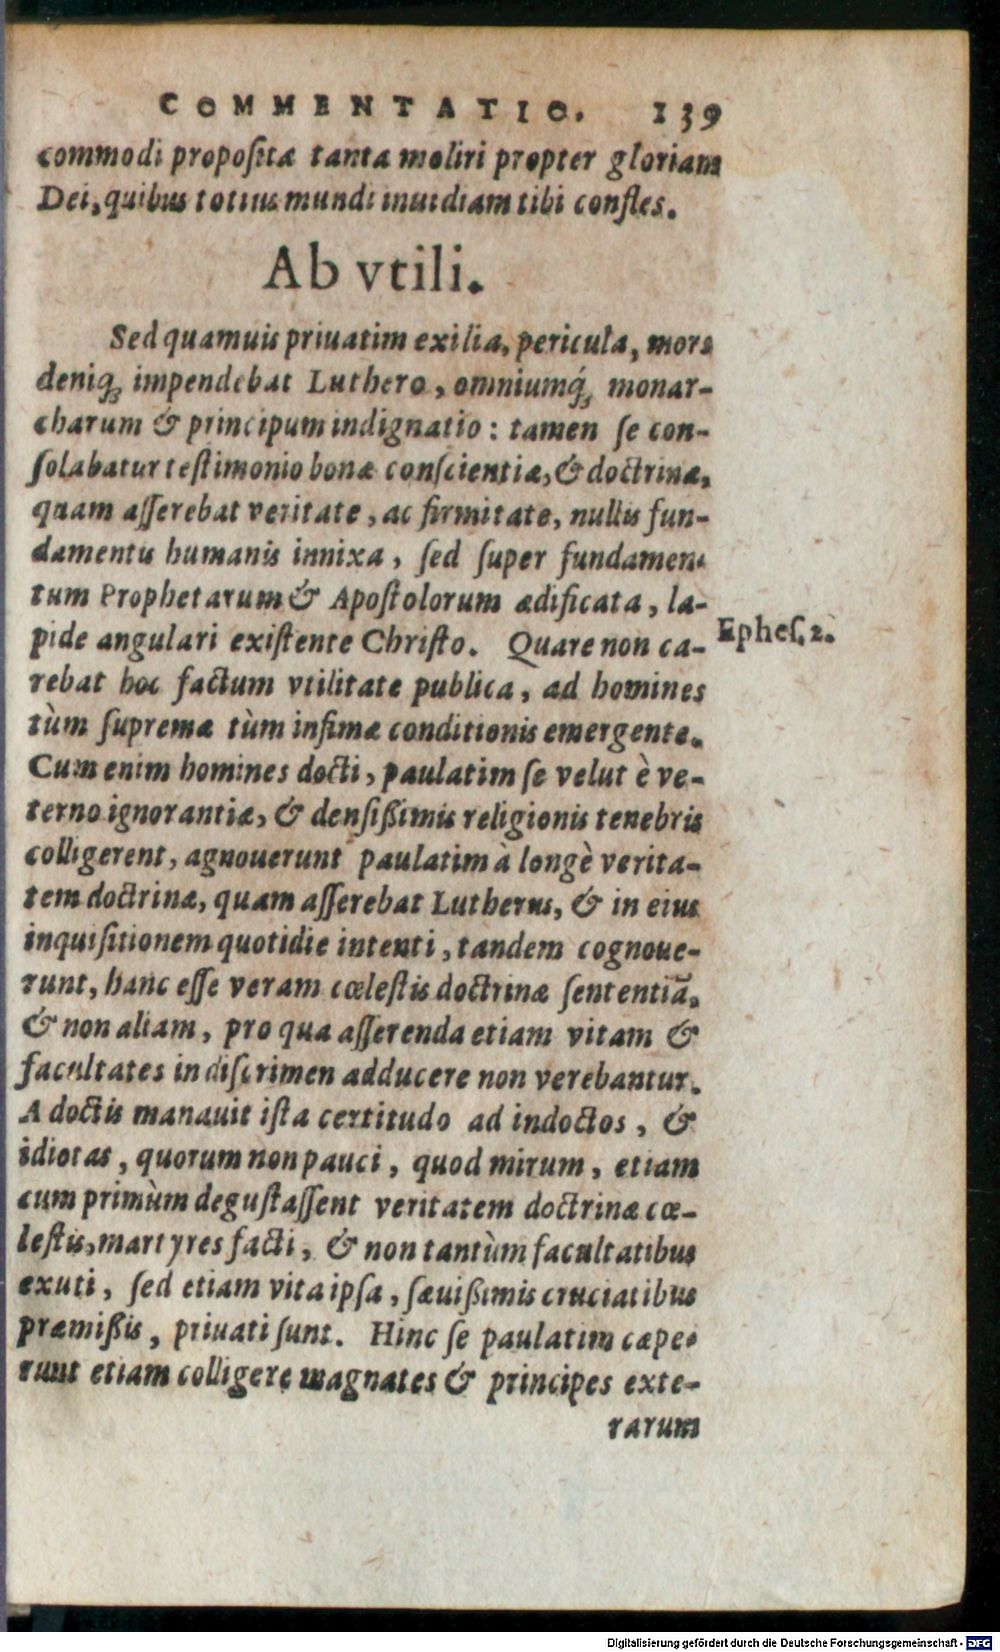 COMMENTATIO. 139
commodi propositæ tanta moliri propter gloriam
Dei, quibus totius mundi inuidiam tibi confles.
Ab vtili.
Sed quamuis priuatim exilia, pericula, mors
deniq́; impendebat Luthero, omniumq́; monar-
charum & principum indignatio: tamen se con-
solabatur testimonio bonæ conscientiæ, & doctrinæ,
quam asserebat veritate, ac firmitate, nullis fun-
damentis humanis innixa, sed super fundamen-
tum Prophetarum & Apostolorum ædificata, la-
pide angulari existente Christo. Quare non ca-
Ephes. 2.
rebat hoc factum vtilitate publica, ad homines
tùm supremæ tùm infimæ conditionis emergente.
Cum enim homines docti, paulatim se velut è ve-
terno ignorantiæ, & densißimis religionis tenebris
colligerent, agnouerunt paulatim à longè verita-
tem doctrinæ, quam asserebat Lutherus, & in eius
inquisitionem quotidie intenti, tandem cognoue-
runt, hanc esse veram cœlestis doctrinæ sententiã,
& non aliam, pro qua asserenda etiam vitam &
facultates in discrimen adducere non verebantur.
A doctis manauit ista certitudo ad indoctos, &
idiotas, quorum non pauci, quod mirum, etiam
cum primùm degustassent veritatem doctrinæ cœ-
lestis, martyres facti, & non tantùm facultatibus
exuti, sed etiam vita ipsa, sæuißimis cruciatibus
præmißis, priuati sunt. Hinc se paulatim cæpe-
runt etiam colligere magnates & principes exte-
rarum
Digitalisierung gefördert durch die Deutsche Forschungsgemeinschaft - DFG